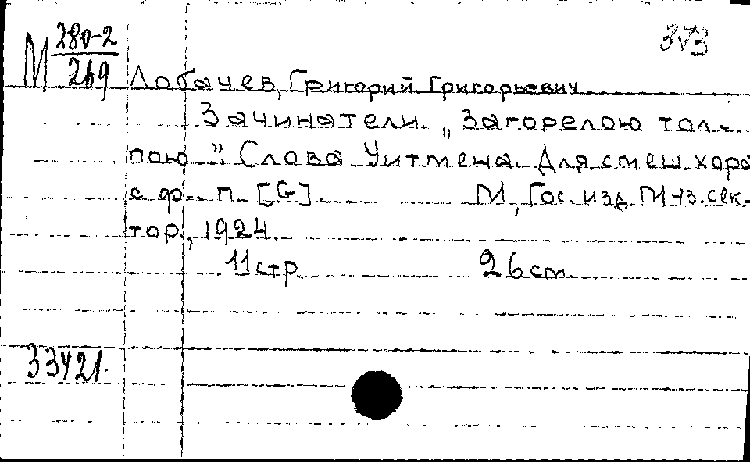 М 280-2
269
373
Лобачев, Григорий Григорьевич
Зачинатели. „Загорелою тол-
пою". Слова Уитмена. Для смеш. хора
с ф.-п. [G] М, Гос. изд. Муз. сек-
тор, 1924
11 стр 26 см
33421.